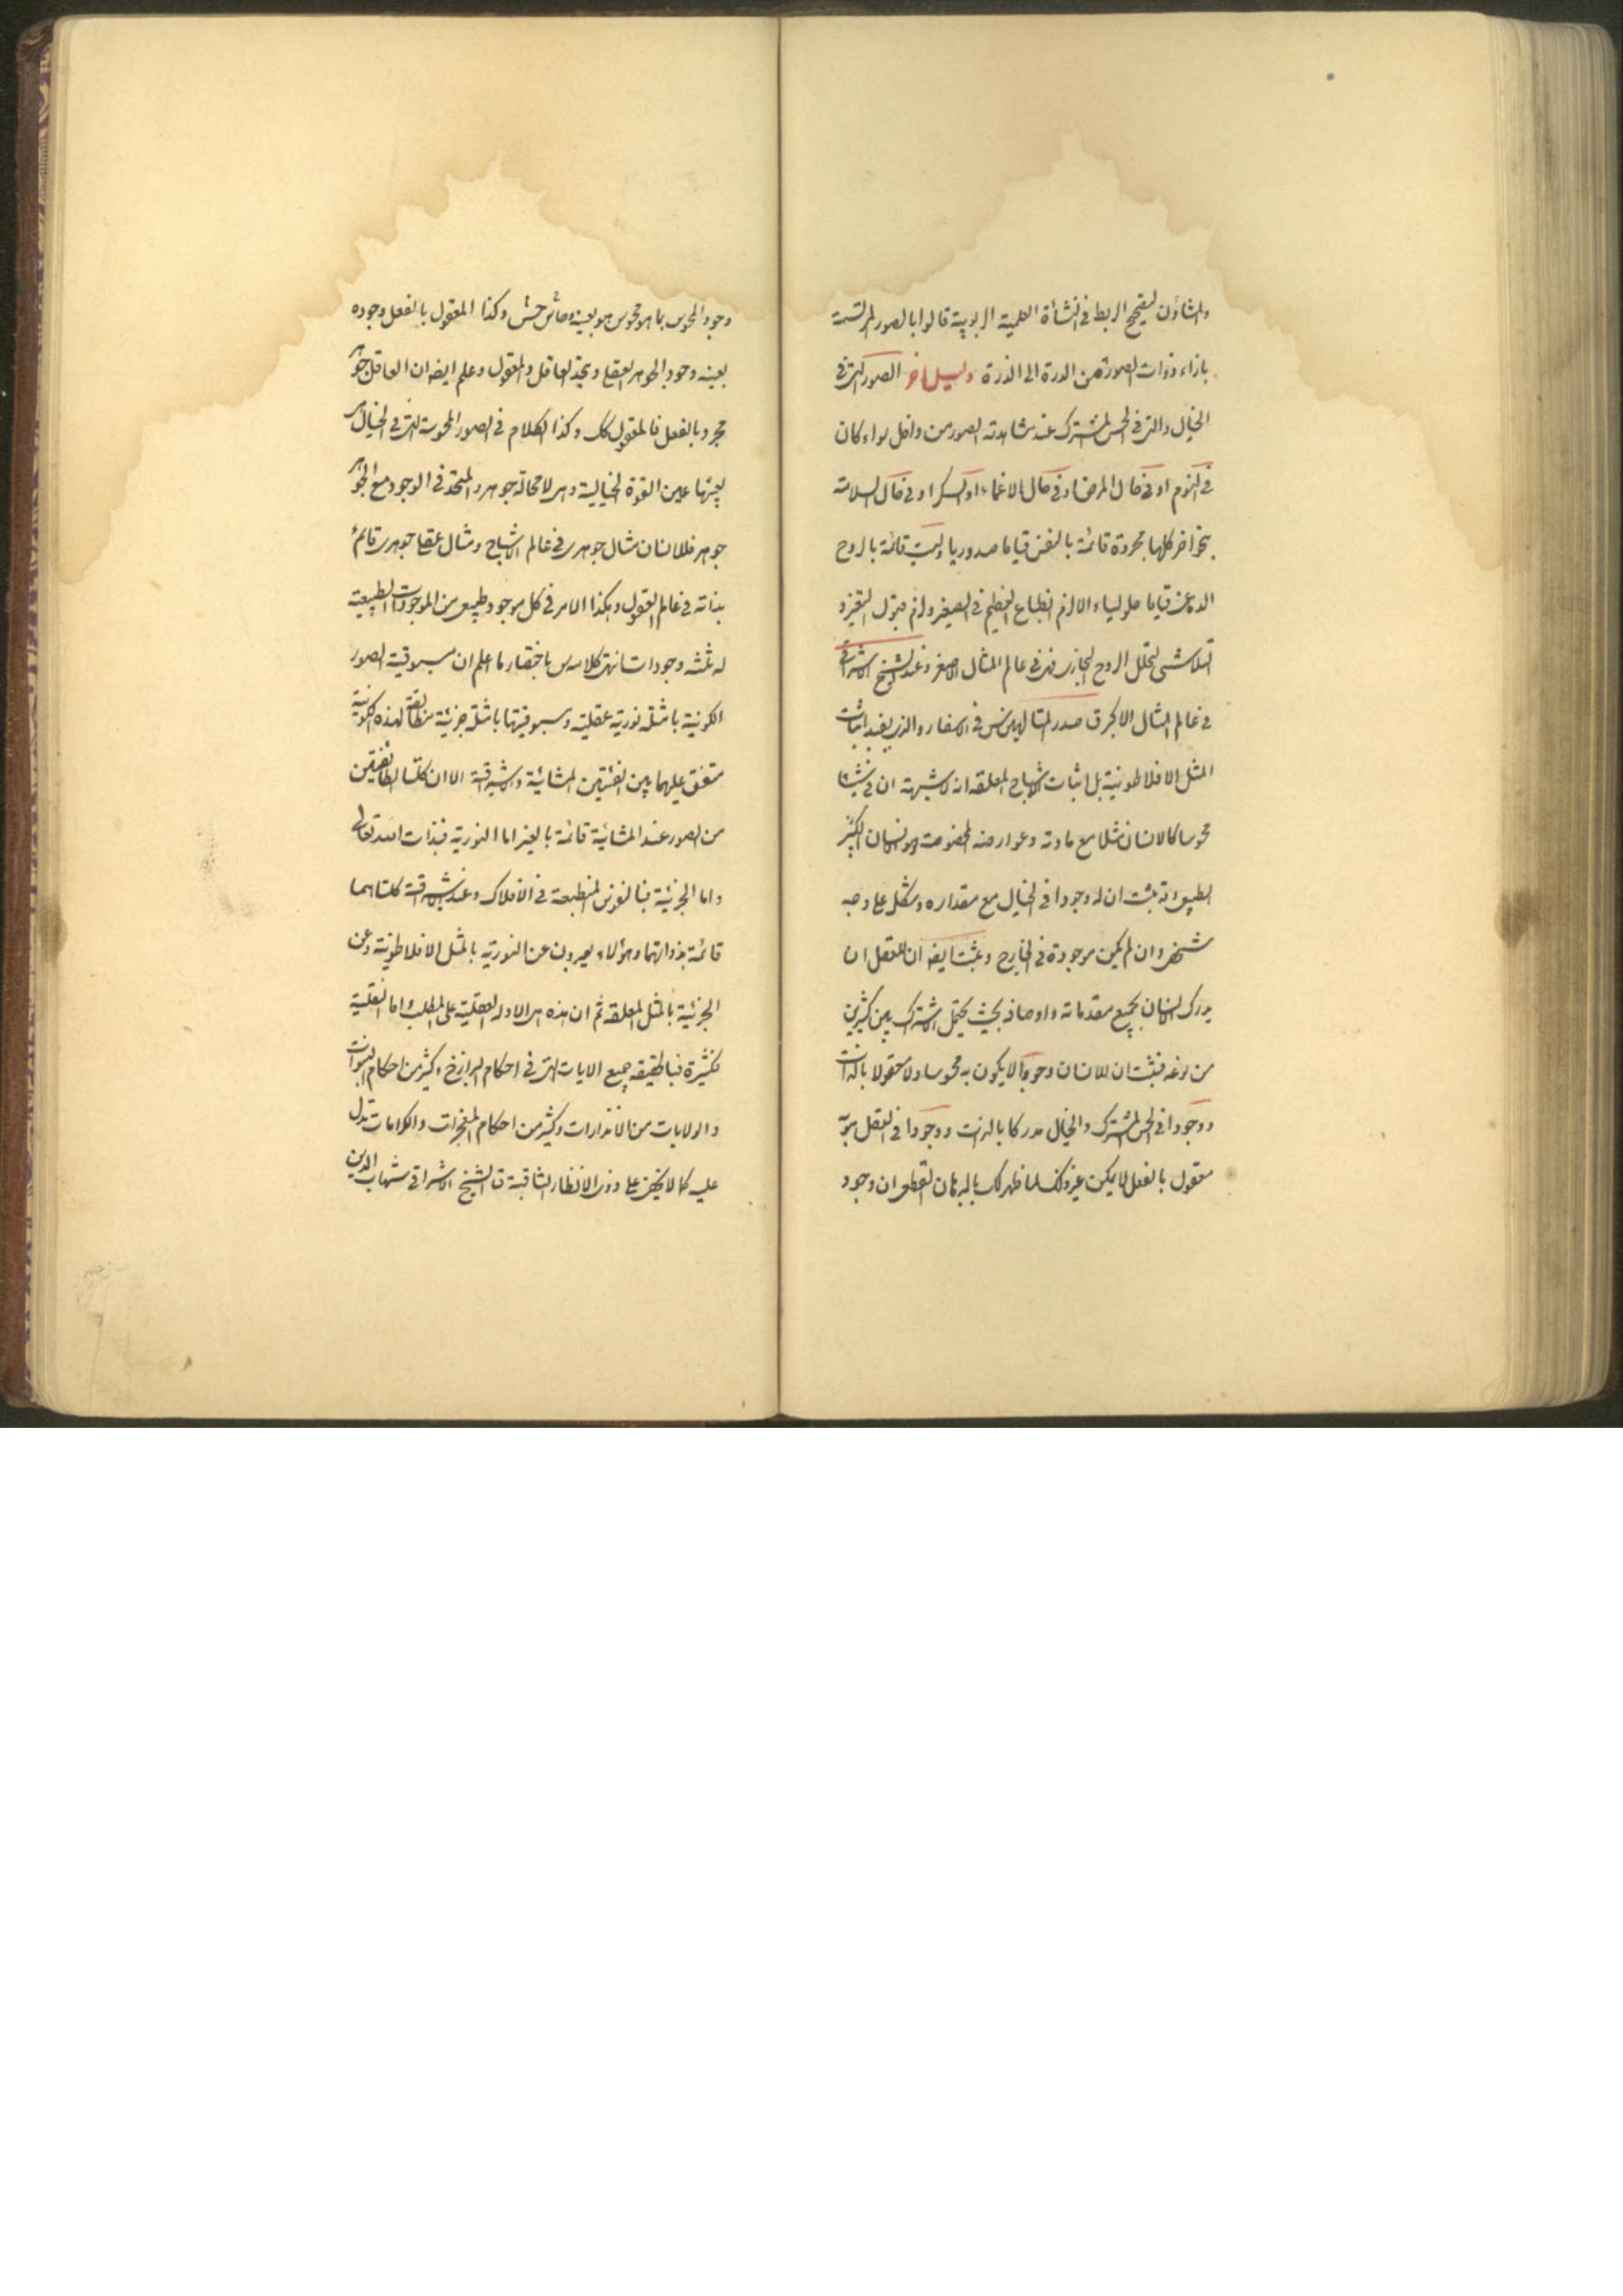 والمشاؤن لتصحيح الربط في النشأة العلمية الربوبية قالوا بالصور المرتسمة
بازاء ذوات الصور من الدرة الى الذرة دليل اخر الصور التي في
الخيال والتي في الحس المشترك عند مشاهدته الصور من داخل سواء كان
في النوم او في حال المرض او في حال الاغماء او السكر او في حال السلامة
بنحو اخر كلها مجردة قائمة بالنفس قياما صدوريا وليست قائمة بالروح
الدماغي قياما حلوليا والا لزم انطباع العظيم في الصغير ولزم قبول التغير و
التلاشي لتحلل الروح البخاري فهي في عالم المثال الاصغر وعند الشيخ الاشراقي
في عالم المثال الاكبر ق صدر المتالهين س في الاسفار والذي يفيد اثبات
المثل الافلاطونية بل اثبات الاشباح المعلقة انه لا شبهة ان في شيئا
محوسا كالانسان مثلا مع مادته وعوارضه المخصوصة وهو الانسان
الطبيعي وقد ثبت ان له وجودا في الخيال مع مقداره وشكل على وجه
شخصي وان لم يكن موجودة في الخارج وثبت ايضه ان للعقل ان
يدرك الانسان بجميع مقدماته واوصافه بحيث يحتمل الاشتراك بين كثيرين
من نوعه فثبت ان للانسان وجودا لا يكون به محوسا ولا معقولا بالذات
ووجودا في الحس المشترك والخيال مدركا بالذات ووجودا في العقل هو به
معقول بالفعل لا يمكن غير ذلك لما ظهر لك بالبرهان القطعي ان وجود
وجود المحوس بما هو محوس هو بعينه وحاس حس وكذا المعقول بالفعل وجوده
بعينه وجود الجوهر العقلي ويتحد العاقل والمعقول وعلم ايضه ان العاقل جوهر
مجرد بالفعل فالمعقول كك وكذا الكلام في الصور المحوسة التي في الخيال
بعينها عين القوة الخيالية وهي لا محالة جوهر والمتحد في الوجود مع الجوهر
جوهر فللانسان مثال جوهري في عالم الاشباح ومثال عقلي جوهري قائم
بذاته في عالم العقول وهكذا الامر في كل موجود طبيعي من الموجودات الطبيعية
له ثلثه وجودات انتهى كلامه س باختصار ما اعلم ان مسبوقية الصور
الكونية بامثلة نورية عقلية ومسبوقيتها بامثلة جزئية مطابقة لهذه الكونية
متفق عليهما بين الفئتين المشائية والاشراقية الا ان كلتا الطائفتين
من الصور عند المشائية قائمة بالغير اما النورية فبذات الله تعالى
واما الجزئية فبالنفوس المنطبعة في الافلاك وعند الاشراقية كلتاهما
قائمة بذواتهما وهؤلاء يعبرون عن النورية بالمثل الافلاطونية وعن
الجزئية بالمثل المعلقة ثم ان هذه هي الادلة العقلية على المطلب واما النقلية
فكثيرة فبالحقيقه جميع الايات التي في احكام البرازخ وكثير من احكام النبوات
والولايات من الانذارات وكثير من احكام المعجزات والكرامات تدل
عليه كما لا يخفى على ذوي الانظار الثاقبة ق الشيخ الاشراقي شهاب الدين